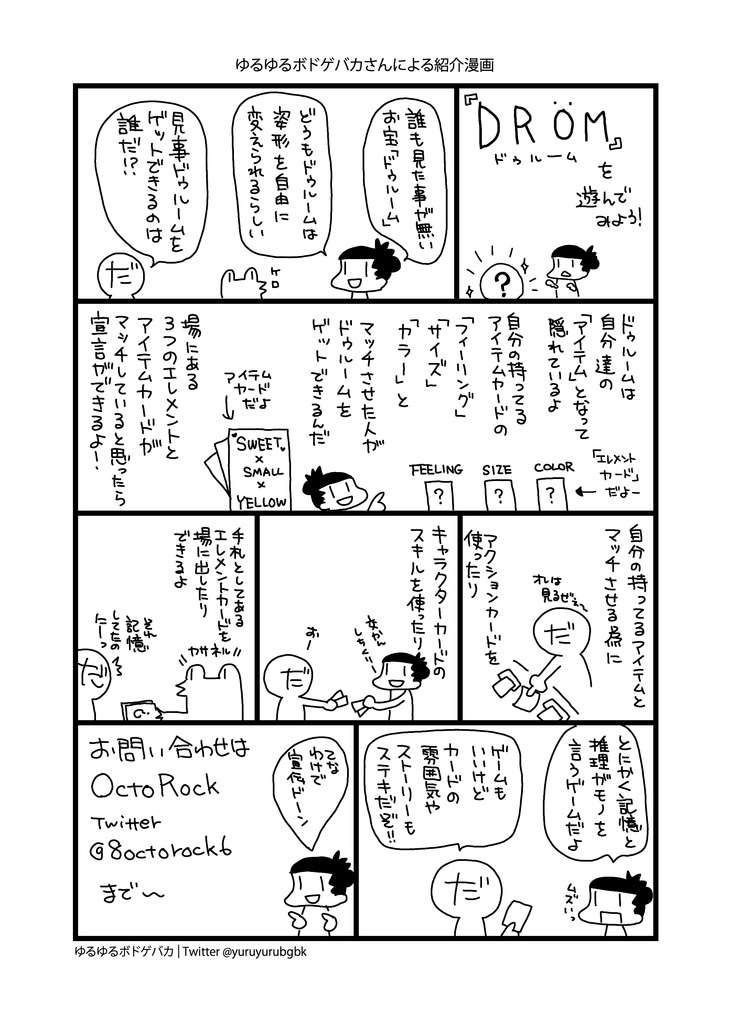 ゆるゆるボドゲバカさんによる紹介漫画
『DRÖM』
ドゥルーム
を
遊んで
みよう!
?
誰も見た事が無い
お宝「ドゥルーム」
どうもドゥルームは
姿形を自由に
変えられるらしい
ケロ
見事ドゥルームを
ゲットできるのは
誰だ!?
だ
ドゥルームは
自分達の
「アイテム」となって
隠れているよ
自分の持ってる
アイテムカードの
「フィーリング」
「サイズ」
「カラー」と
マッチさせた人が
ドゥルームを
ゲットできるんだ
「エレメント
カード」
だよー
COLOR
?
SIZE
?
FEELING
?
アイテム
カード
だよ
SWEET
×
SMALL
×
YELLOW
場にある
3つのエレメントと
アイテムカードが
マッチしていると思ったら
宣言ができるよー!
自分の持ってるアイテムと
マッチさせる為に
アクションカードを
使ったり
オレは
見るぜぇ〜
だ
キャラクターカードの
スキルを使ったり
交かん
しちくりー
おー
だ
手札としてある
エレメントカードを
場に出したり
できるよ
カサネル!!
それ
記憶
してたの
にーっ
だ
とにかく記憶と
推理がモノを
言うゲームだよ
ムズいっ
ゲームも
いいけど
カードの
雰囲気や
ストーリーも
ステキだぞ!!
だ
てな
わけで
宣伝ドーン
お問い合わせは
OctoRock
Twitter
@8octorock6
まで〜
ゆるゆるボドゲバカ | Twitter @yuruyurubgbk